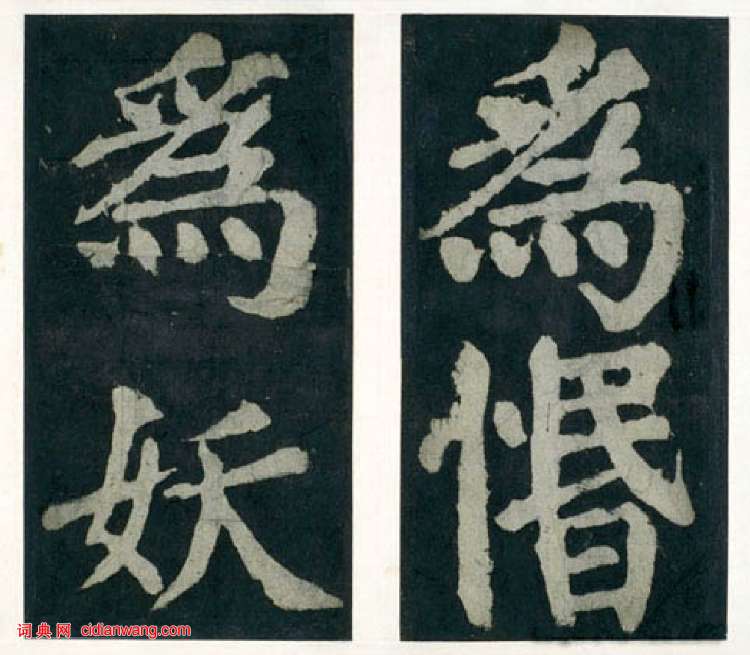 為惽
爲妖
词典网 cidianwang.com